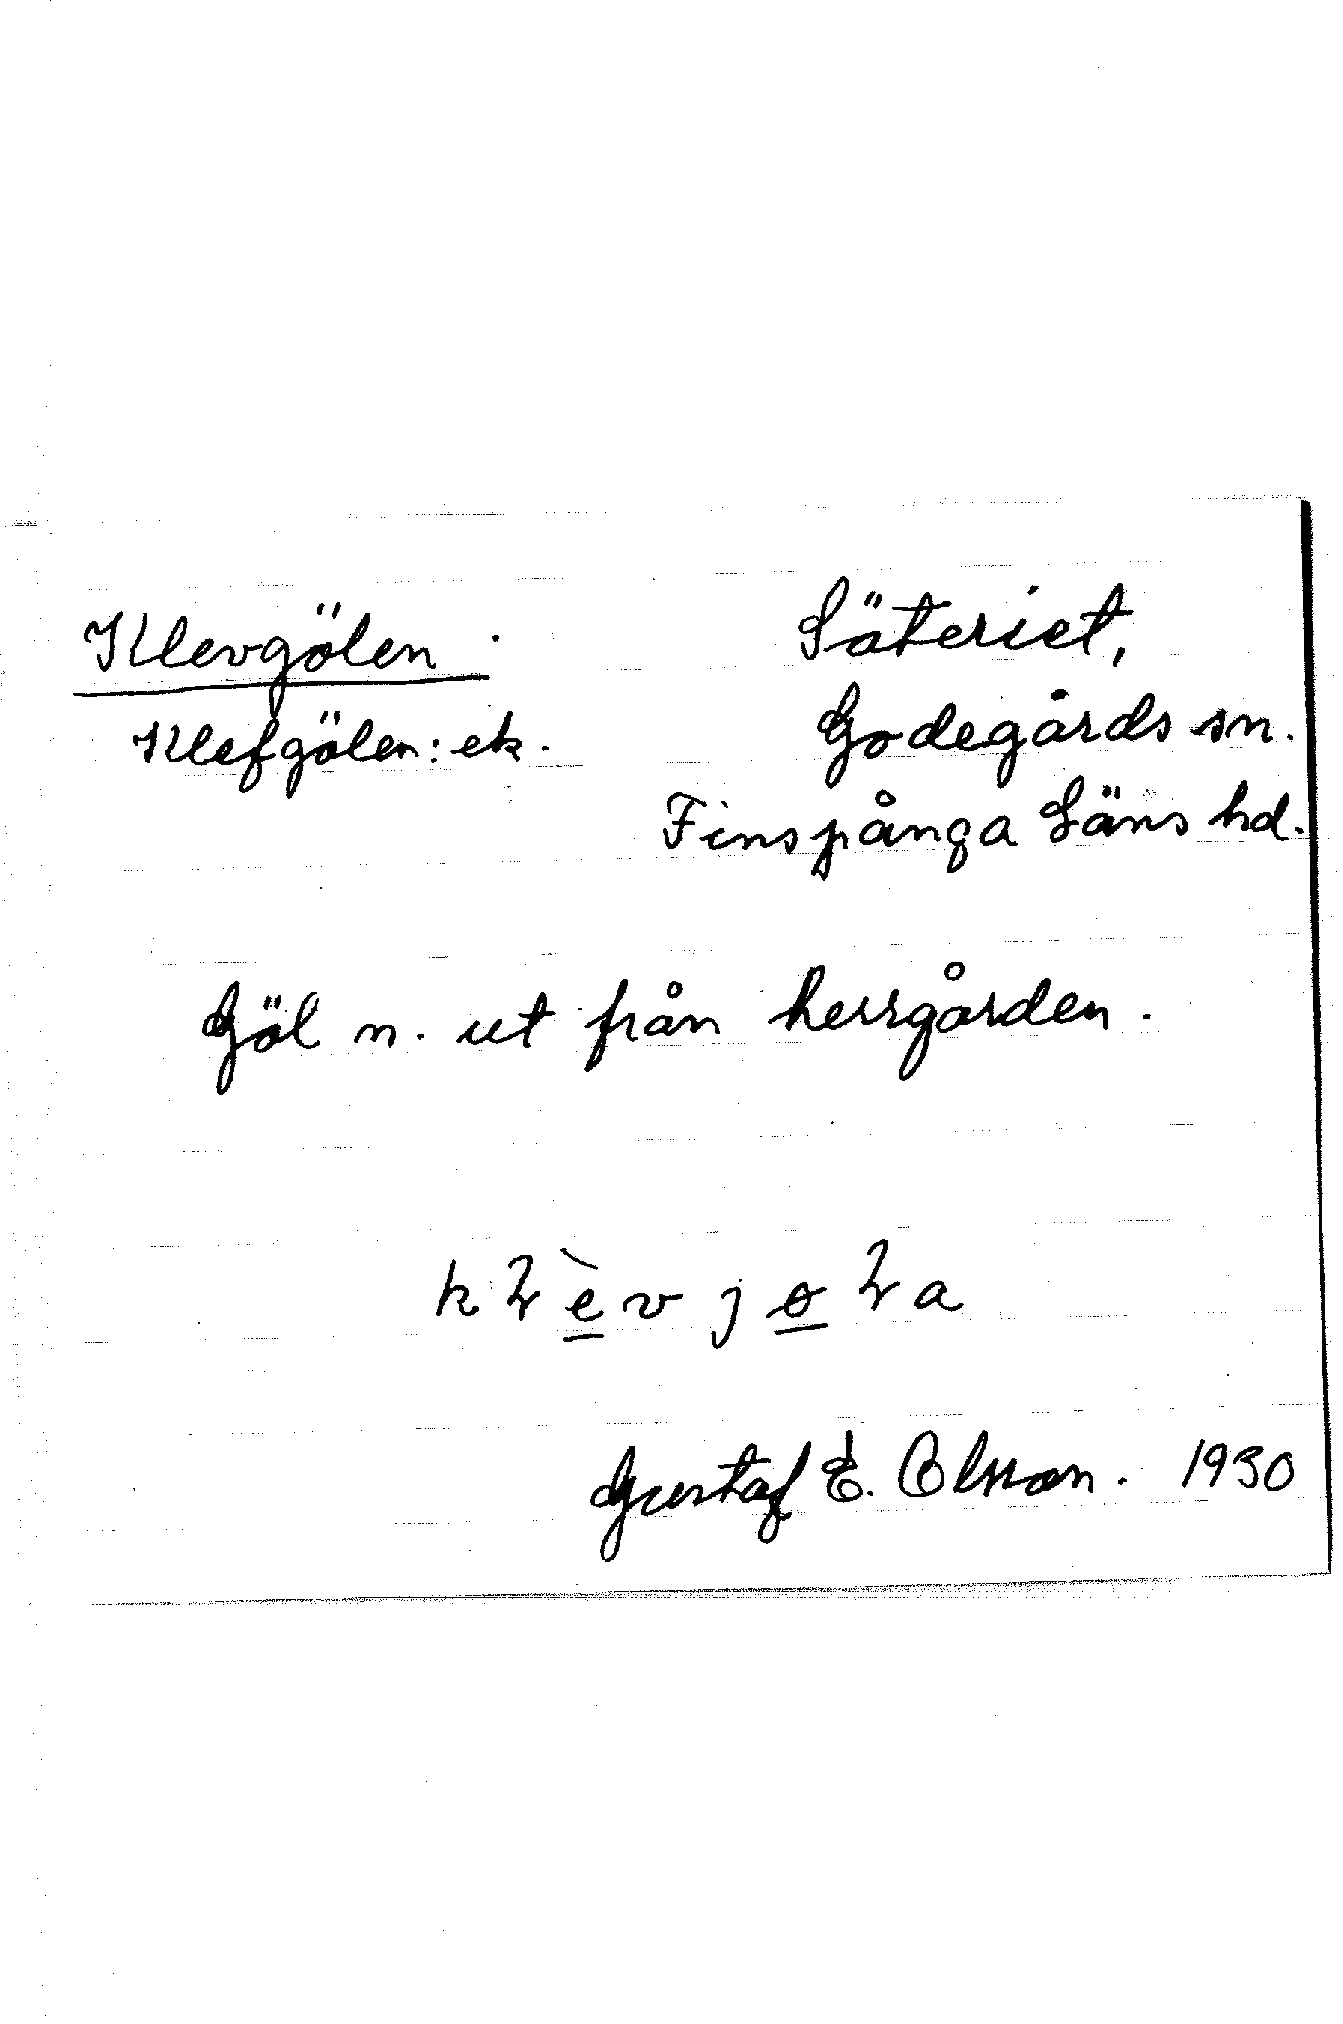 Klevgölen
Klefgölen: ek.
Säteriet,
Godegårds sn.
Finspånga Läns hd.
Göl n. ut från herrgården.
kɽèvjɵɽa
Gustaf E. Olsson. 1930